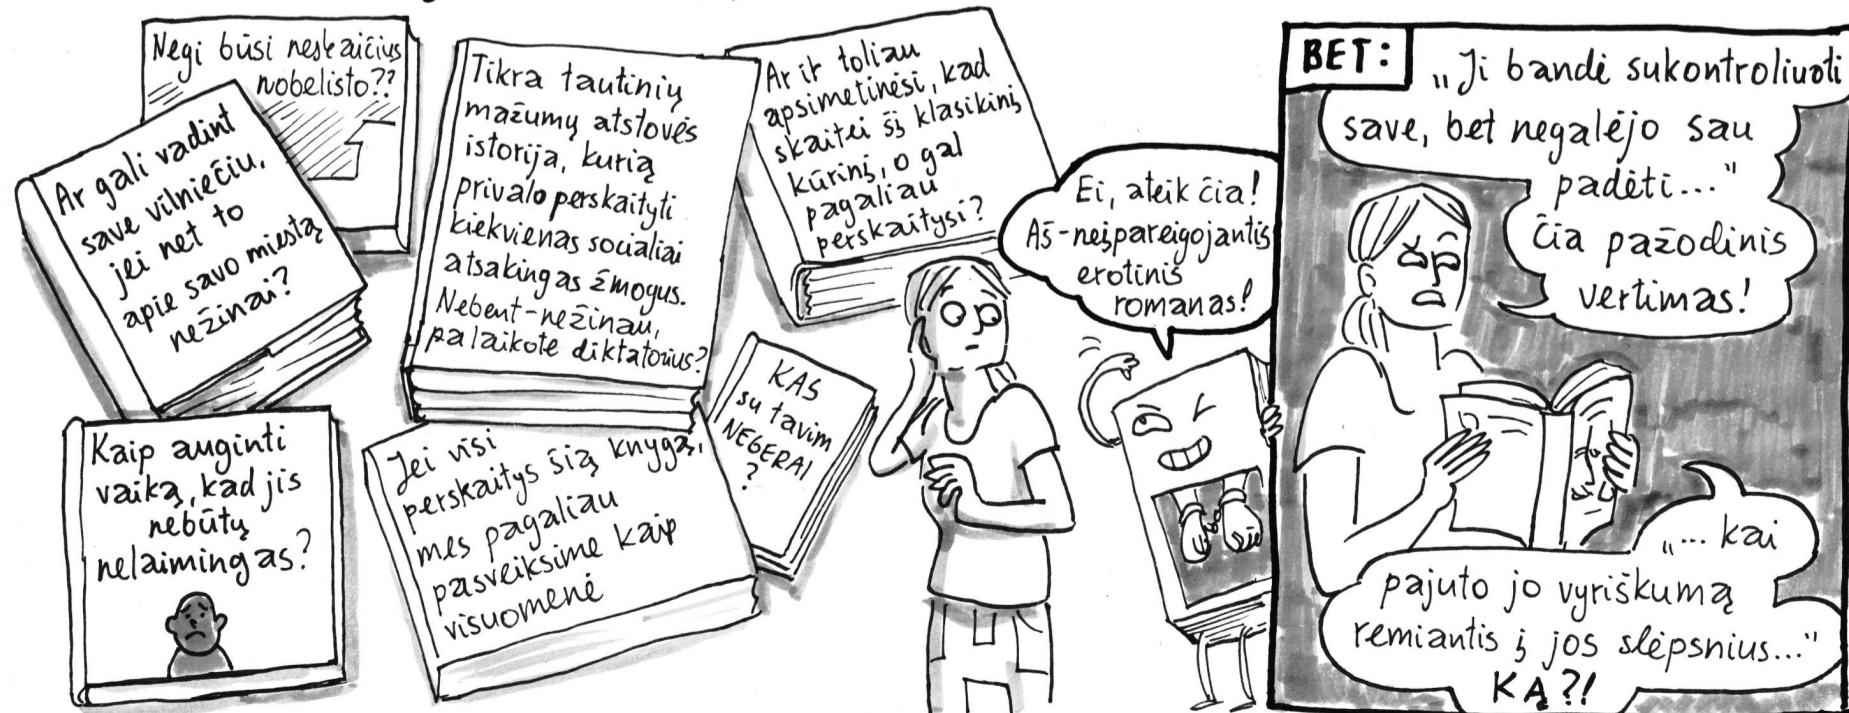 Negi būsi neskaičius
nobelisto??
Ar gali vadint
save vilniečiu,
jei net to
apie savo miestą
nežinai?
Tikra tautinių
mažumų atstovės
istorija, kurią
privalo perskaityti
kiekvienas socialiai
atsakingas žmogus.
Nebent-nežinau,
palaikote diktatorius?
Ar ir toliau
apsimetinėsi, kad
skaitei šį klasikinį
kūrinį, o gal
pagaliau
perskaitysi?
Kaip auginti
vaiką, kad jis
nebūtų
nelaimingas?
Jei visi
perskaitys šią knygą,
mes pagaliau
pasveiksime kaip
visuomenė
KAS
su tavim
NEGERAI
?
Ei, ateik čia!
Aš-neįpareigojantis
erotinis
romanas!
BET:
„Ji bandė sukontroliuoti
save, bet negalėjo sau
padėti..."
Čia pažodinis
vertimas!
„... kai
pajuto jo vyriškumą
remiantis į jos slėpsnius..."
KĄ?!